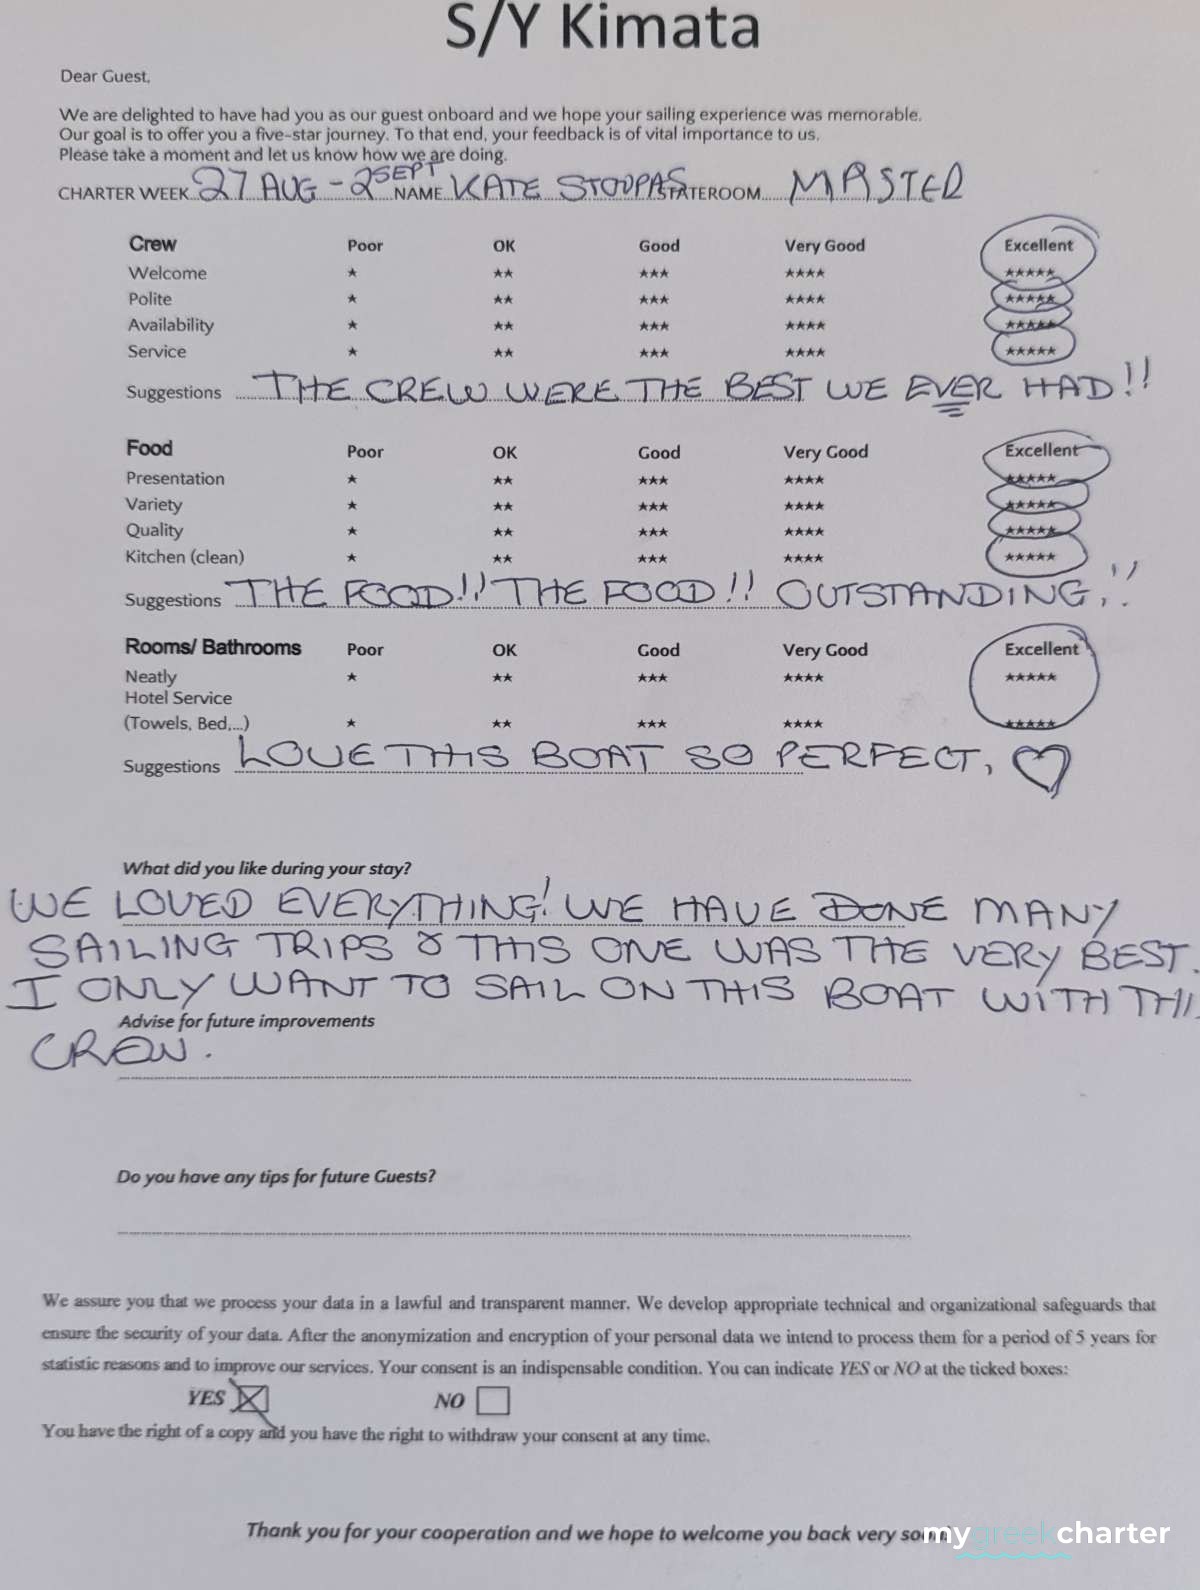 S/Y Kimata
Dear Guest,
We are delighted to have had you as our guest onboard and we hope your sailing experience was memorable.
Our goal is to offer you a five-star journey. To that end, your feedback is of vital importance to us.
Please take a moment and let us know how we are doing.
CHARTER WEEK 27 AUG - 2 SEPT NAME KATE STOUPAS STATEROOM MASTER
Crew Poor OK Good Very Good Excellent
Welcome ★ ★★ ★★★ ★★★★ ★★★★★
Polite ★ ★★ ★★★ ★★★★ ★★★★★
Availability ★ ★★ ★★★ ★★★★ ★★★★★
Service ★ ★★ ★★★ ★★★★ ★★★★★
Suggestions THE CREW WERE THE BEST WE EVER HAD!!
Food Poor OK Good Very Good Excellent
Presentation ★ ★★ ★★★ ★★★★ ★★★★★
Variety ★ ★★ ★★★ ★★★★ ★★★★★
Quality ★ ★★ ★★★ ★★★★ ★★★★★
Kitchen (clean) ★ ★★ ★★★ ★★★★ ★★★★★
Suggestions THE FOOD!! THE FOOD!! OUTSTANDING!!
Rooms/ Bathrooms Poor OK Good Very Good Excellent
Neatly ★ ★★ ★★★ ★★★★ ★★★★★
Hotel Service
(Towels, Bed,...) ★ ★★ ★★★ ★★★★ ★★★★★
Suggestions LOVE THIS BOAT SO PERFECT, ♡
What did you like during your stay?
WE LOVED EVERYTHING! WE HAVE DONE MANY
SAILING TRIPS & THIS ONE WAS THE VERY BEST.
I ONLY WANT TO SAIL ON THIS BOAT WITH THI
Advise for future improvements
CREW.
Do you have any tips for future Guests?
We assure you that we process your data in a lawful and transparent manner. We develop appropriate technical and organizational safeguards that
ensure the security of your data. After the anonymization and encryption of your personal data we intend to process them for a period of 5 years for
statistic reasons and to improve our services. Your consent is an indispensable condition. You can indicate YES or NO at the ticked boxes:
YES ☒ NO ☐
You have the right of a copy and you have the right to withdraw your consent at any time.
Thank you for your cooperation and we hope to welcome you back very soon!
mygreekcharter